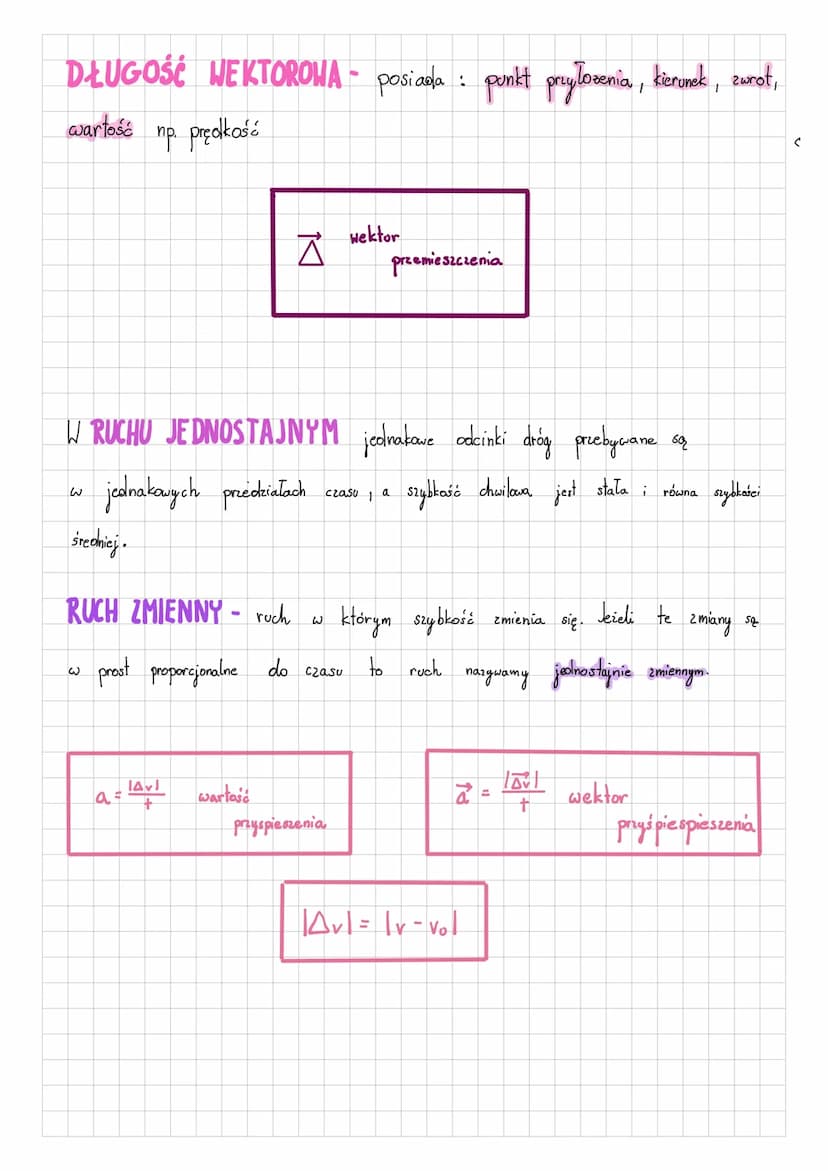 DŁUGOŚĆ WEKTOROWA - posiada : punkt przyłożenia, kierunek, zwrot,
wartość np. prędkość
Δ⃗ wektor
przemieszczenia
W RUCHU JEDNOSTAJNYM jednakowe odcinki dróg przebywane są
w jednakowych przedziałach czasu, a szybkość chwilowa jest stała i równa szybkości
średniej.
RUCH ZMIENNY - ruch w którym szybkość zmienia się. Jeżeli te zmiany są
w prost proporcjonalne do czasu to ruch nazywamy jednostajnie zmiennym.
a = |Δv|/t wartość
przyspieszenia
a⃗ = |Δv⃗|/t wektor
pryśpiespieszenia
|Δv| = |v - v₀|